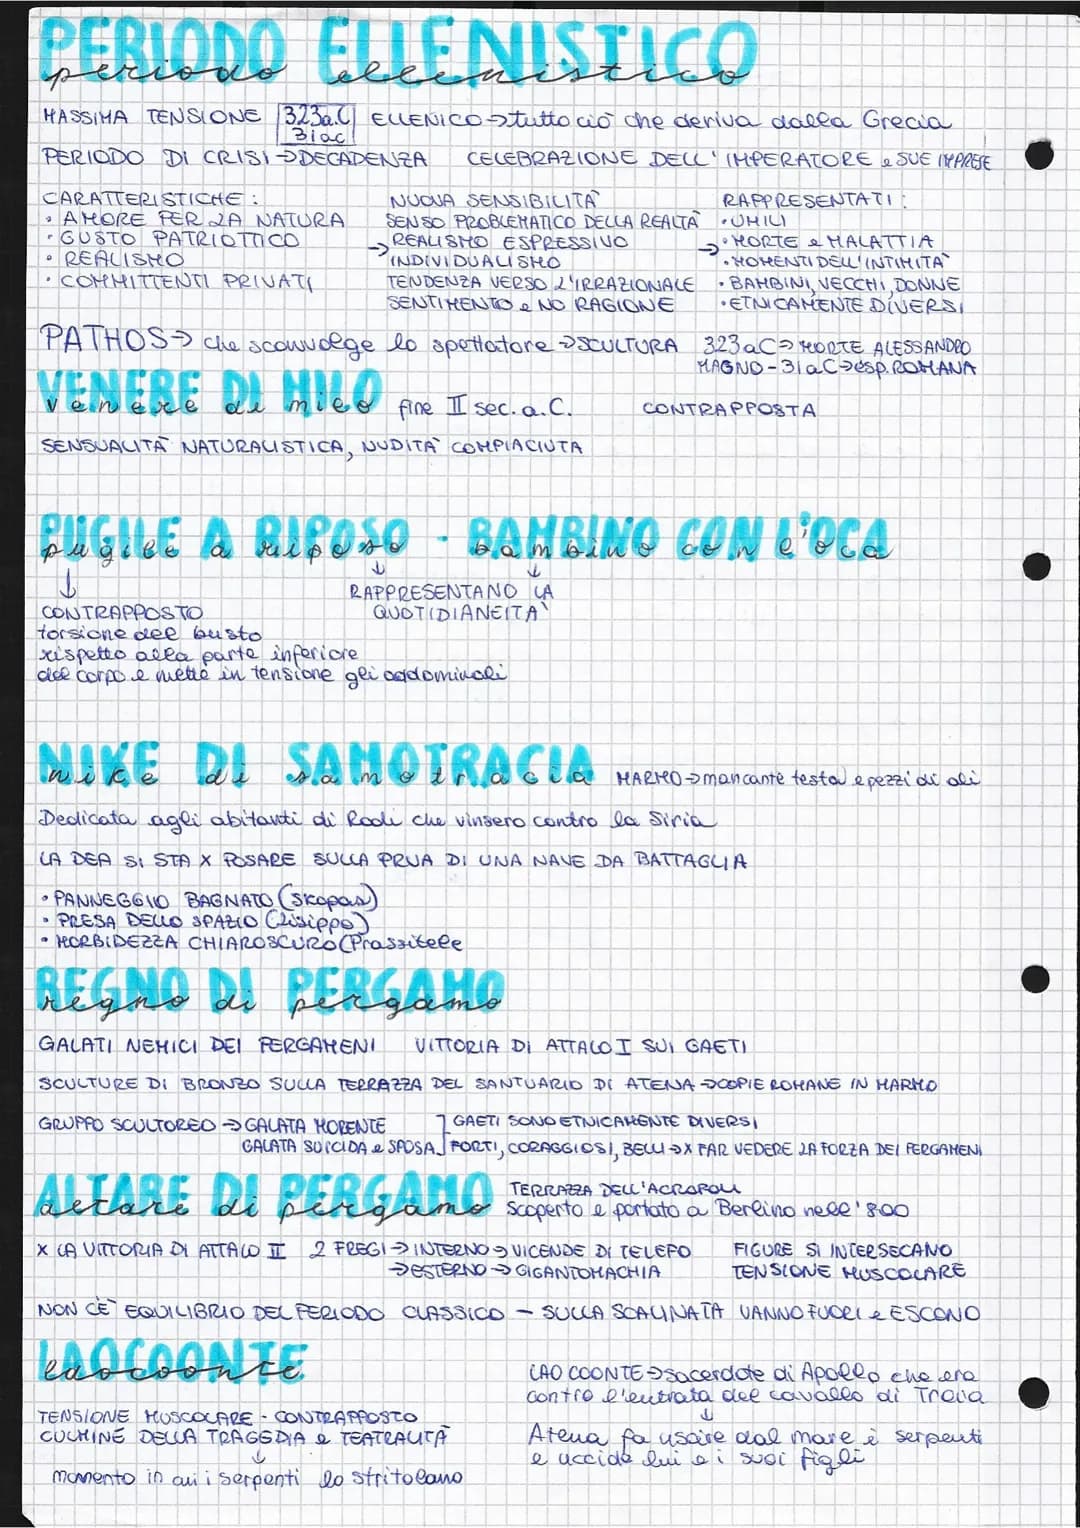 PERIODO ELLENISTICO
periodo ellenistico
MASSIMA TENSIONE 323a.C ELLENICO→tutto ciò che deriva dalla Grecia
31ac
PERIODO DI CRISI→DECADENZA CELEBRAZIONE DELL'IMPERATORE e SUE IMPRESE
CARATTERISTICHE:
• AMORE PER LA NATURA
• GUSTO PATRIOTTICO
• REALISMO
• COMMITTENTI PRIVATI
NUOVA SENSIBILITÀ
SENSO PROBLEMATICO DELLA REALTÀ
→REALISMO ESPRESSIVO
INDIVIDUALISMO
TENDENZA VERSO L'IRRAZIONALE
SENTIMENTO e NO RAGIONE
RAPPRESENTATI:
• UMILI
→• MORTE e MALATTIA
• MOMENTI DELL'INTIMITÀ
• BAMBINI, VECCHI, DONNE
• ETNICAMENTE DIVERSI
PATHOS→ che sconvolge lo spettatore→SCULTURA 323aC→MORTE ALESSANDRO
MAGNO-31aC→esp.ROMANA
VENERE DI MILO
venere di milo fine II sec. a.C. CONTRAPPOSTA
SENSUALITÀ NATURALISTICA, NUDITÀ COMPIACIUTA
PUGILE A RIPOSO - BAMBINO CON L'OCA
pugile a riposo bambino con l'oca
↓ ↓ ↓
RAPPRESENTANO LA
QUOTIDIANEITÀ
CONTRAPPOSTO
torsione del busto
rispetto alla parte inferiore
del corpo e mette in tensione gli addominali
NIKE DI SAMOTRACIA
nike di samotracia MARMO→mancante testa e pezzi di ali
Dedicata agli abitanti di Rodi che vinsero contro la Siria
LA DEA SI STA X POSARE SULLA PRUA DI UNA NAVE DA BATTAGLIA
• PANNEGGIO BAGNATO (Skopas)
• PRESA DELLO SPAZIO (Lisippo)
• MORBIDEZZA CHIAROSCURO(Prassitele
REGNO DI PERGAMO
regno di pergamo
GALATI NEMICI DEI PERGAMENI VITTORIA DI ATTALO I SUI GAETI
SCULTURE DI BRONZO SULLA TERRAZZA DEL SANTUARIO DI ATENA→COPIE ROMANE IN MARMO
GRUPPO SCULTOREO→GALATA MORENTE ] GAETI SONO ETNICAMENTE DIVERSI
GALATA SUICIDA e SPOSA FORTI, CORAGGIOSI, BELLI→X FAR VEDERE LA FORZA DEI PERGAMENI
ALTARE DI PERGAMO TERRAZZA DELL'ACROPOLI
altare di pergamo scoperto e portato a Berlino nell'800
X LA VITTORIA DI ATTALO II 2 FREGI→INTERNO→VICENDE DI TELEFO FIGURE SI INTERSECANO
→ESTERNO→GIGANTOMACHIA TENSIONE MUSCOLARE
NON CE' EQUILIBRIO DEL PERIODO CLASSICO - SULLA SCALINATA VANNO FUORI e ESCONO
LAOCOONTE
laocoonte
TENSIONE MUSCOLARE - CONTRAPPOSTO
CULMINE DELLA TRAGEDIA e TEATRALITÀ
↓
momento in cui i serpenti lo stritolano
LAOCOONTE→sacerdote di Apollo che era
contro l'entrata del cavallo di Troia
↓
Atena fa uscire dal mare i serpenti
e uccide lui e i suoi figli